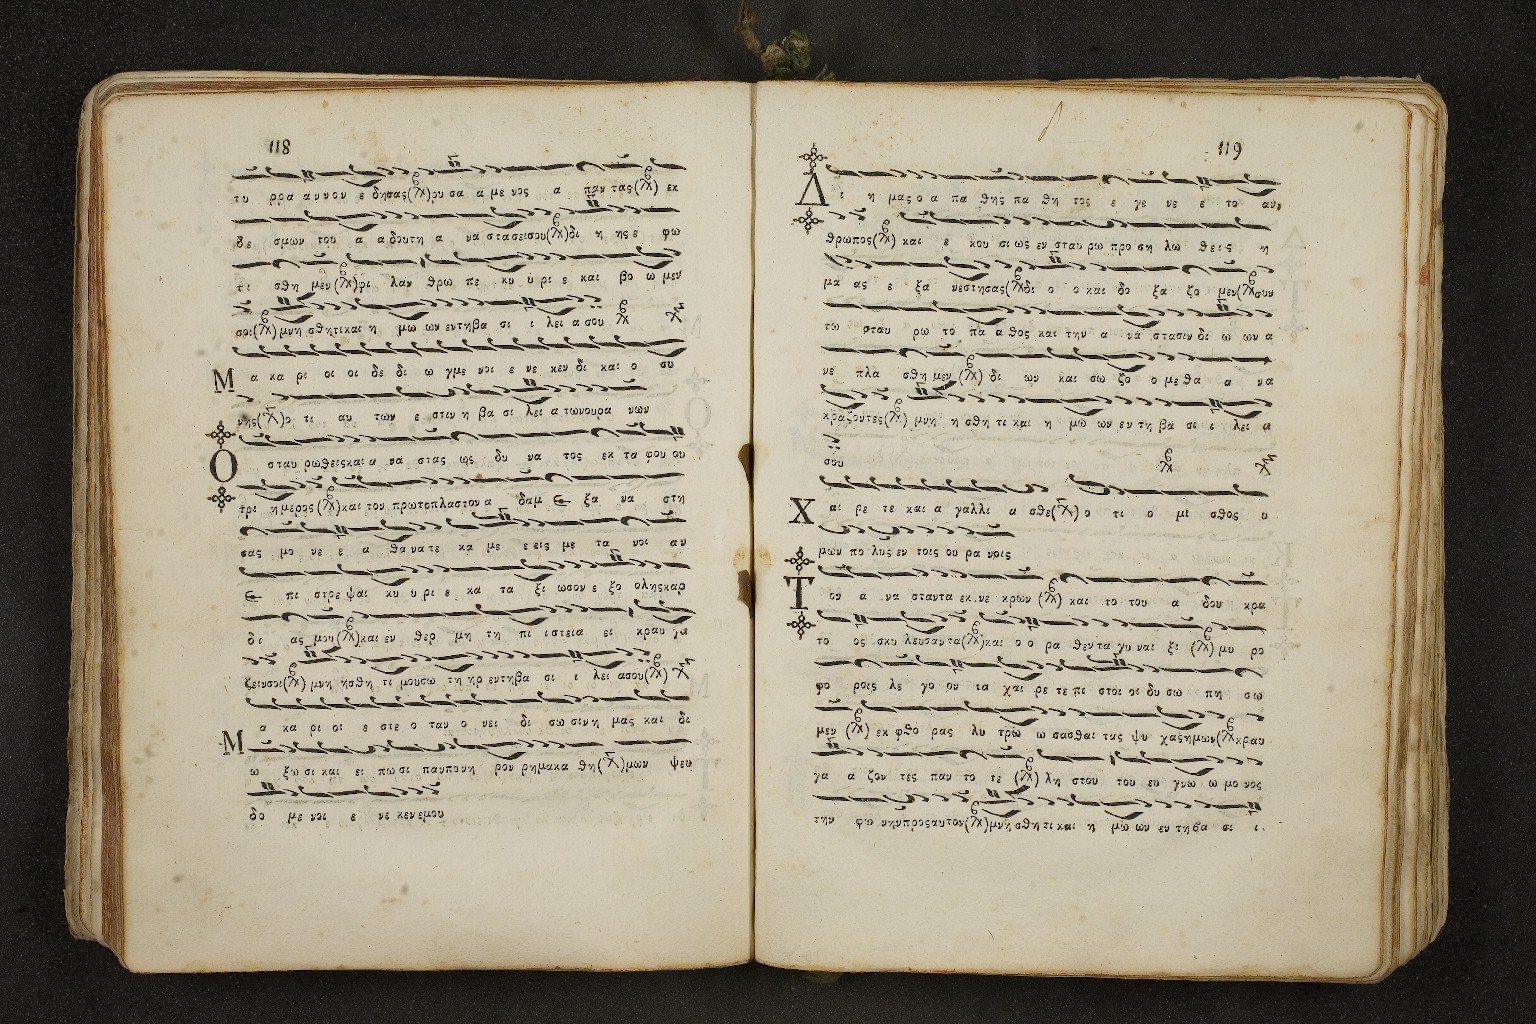 118
τυ ρρα αυνον ε δησας(χ)ου σα α με νος α παν τας(χ) εκ
δε σμων του α α δου τη α να στασεισου(χ)δι η ης ε φω
τι σθη μεν(χ)φι λαν θρω πε κυ υ ρι ε και βο ω μεν
σοι(χ)μνη σθητικαι η μω ων εντηβα σι ι λει α σου χ
Μ α κα ρι οι οι δε δι ω γμε νοι ε νε κεν δι και ο συ
νης(χ)ο τι αυ των ε στιν η βα σι λει α τωνουρα νων
Ο σταυ ρωθειςκαι α να στας ως δυ να τος εκ τα φου ου
τρι ημερος(χ)και τον πρωτοπλαστον α δαμ ε ξα να στη
σας μο νε ε α θανατε κα με ε εις με τα νοι αν
ε πι στρεψαι κυ υ ρι ε κα τα ξι ωσον ε ξο οληςκαρ
δι ας μου(χ)και εν θερ μη τη πι ιστεια ει κραυ γα
ζεινσοι(χ)μνη ησθη τι μουσω τη ηρ εντηβα σι ι λει ασου(χ)
Μ α κα ρι οι ε στε ο ταν ο νει δι σω σιν η μας και δι
ω ξω σι και ει πω σι πανπονη ρον ρημακα θη(χ)μων ψευ
δο με νοι ε νε κενεμου
119
Δ ι η μας ο α πα θης πα θη τος ε γε νε ε το αν
θρωπος(χ) και ε κου σι ως εν σταυ ρω προ ση λω θεις η
μα ας ε ξα νεστησας(χ)δι ο ο και δο ξα ζο μεν(χ)συν
τω σταυ ρω το πα α θος και την α να στασιν δι ω ων α
νε πλα σθη μεν (χ) δι ων και σω ζο ο με θα α να
κραζοντες(χ) μνη η σθη τι και η μω ων εν τη βα σι ι λει α
σου χ
Χ αι ρε τε και α γαλλι α σθε(χ) ο τι ο μι σθος υ
μων πο λυς εν τοις ου ρα νοις
Τ ον α να σταντα εκ νε κρων (χ) και το του α δου κρα
το ος σκυ λευσαντα(χ)και ο ο ρα θεν τα γυ ναι ξι (χ) μυ ρο
φο ροις λε γο ον τα χαι ρε τε πι στοι οι δυ σω πη σω
μεν (χ) εκ φθο ρας λυ τρω ω σασθαι τας ψυ χαςημων(χ)κραυ
γα α ζον τες παν το τε (χ) λη στου του ευ γνω ω μο νος
την φω νηνπροςαυτον(χ)μνη σθη τι και η μω ων εν τηβα σι ι